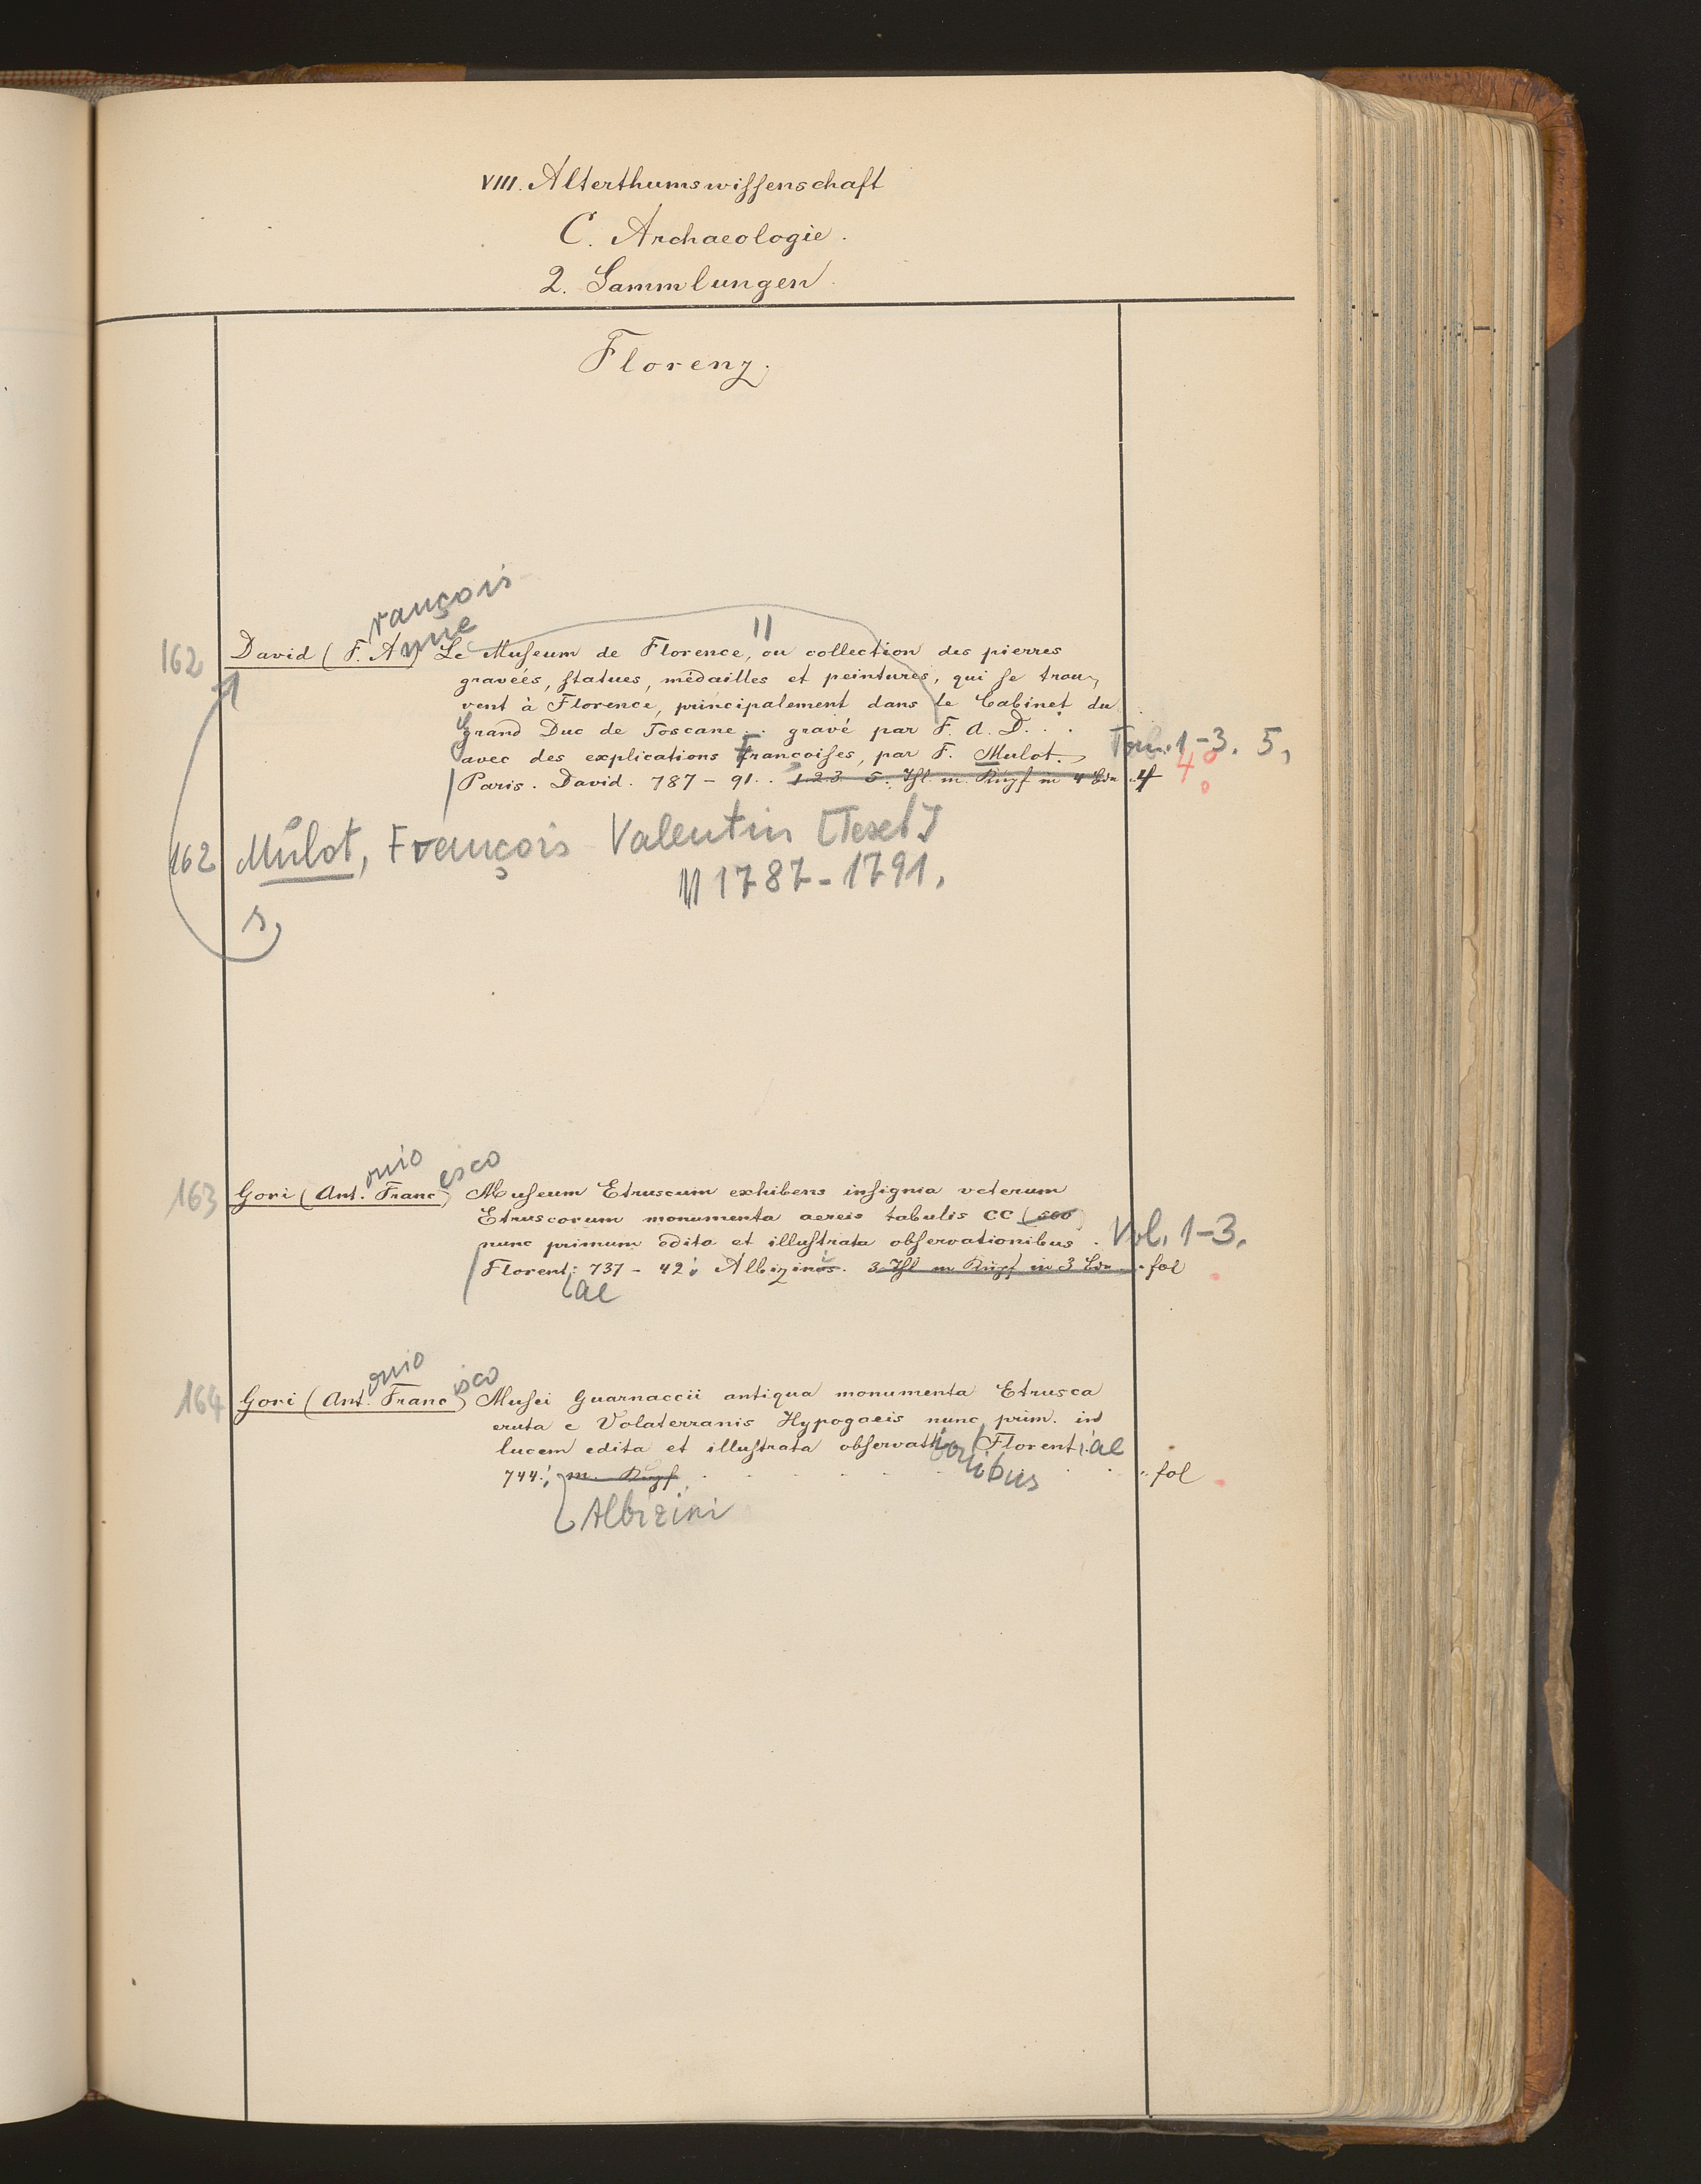 VIII. Alterthumswiſſenschaft
C. Archaeologie.
2. Sammlungen.
Florenz.
rançois
nne
162 David (F. A.) Le Muſeum de Florence, ou collection des pierres
gravées, ſtatues, médailles et peintures, qui ſe trou-
vent à Florence, principalement dans le Cabinet du
Grand Duc de Toscane... gravé par F. A. D. . .
avec des explications Francoiſes, par F. Mulot. Tom. 1-3. 5,
Paris. David. 787 - 91. . 1. 2. 3. 5. Thl. m. Kupf in 4 Bdn 4 4°
162 Mulot, François Valentin [Text]
1787-1791.
s,
onio esco
163 Gori (Ant. Franc) Muſeum Etruscum exhibens inſignia veterum
Etruscorum monumenta aereis tabulis CC
nunc primum edita et illuſtrata obſervationibus. Vol. 1-3.
Florent: 737 - 42. Albizinus. 3 Thl m Kupf in 3 Bdn fol
ae
onio isco
164 Gori (Ant. Franc) Muſei Guarnaccii antiqua monumenta Etrusca
eruta e Volaterranis Hypogaeis nunc prim. in
lucem edita et illuſtrata obſervat Florent iae
ionibus
744. m. Kupf. fol
Albizini